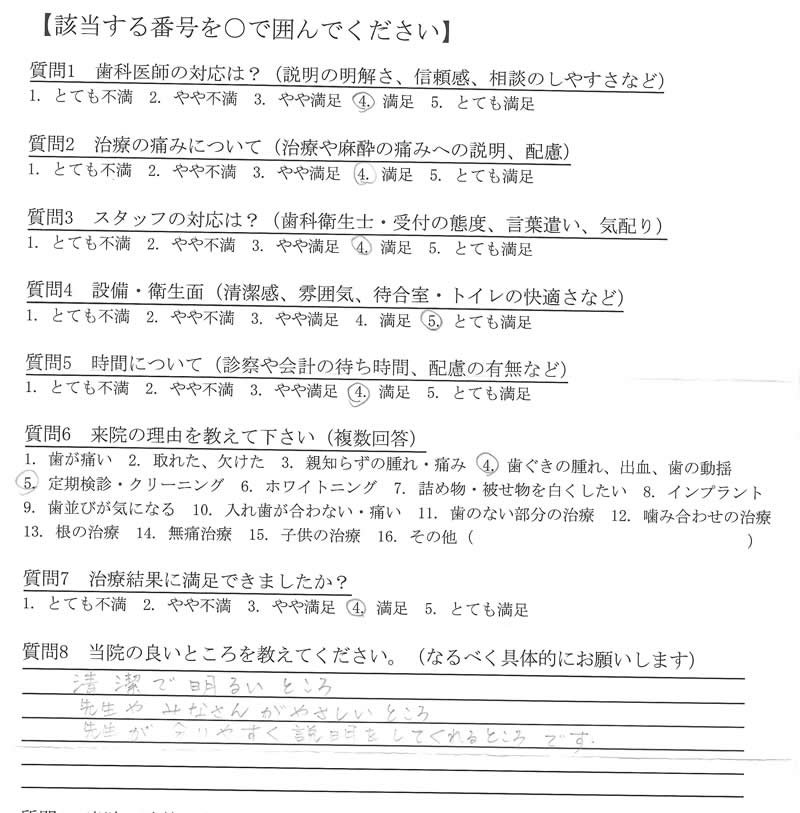 【該当する番号を○で囲んでください】
質問1 歯科医師の対応は？（説明の明解さ、信頼感、相談のしやすさなど）
1. とても不満 2. やや不満 3. やや満足 4. 満足 5. とても満足
質問2 治療の痛みについて（治療や麻酔の痛みへの説明、配慮）
1. とても不満 2. やや不満 3. やや満足 4. 満足 5. とても満足
質問3 スタッフの対応は？（歯科衛生士・受付の態度、言葉遣い、気配り）
1. とても不満 2. やや不満 3. やや満足 4. 満足 5. とても満足
質問4 設備・衛生面（清潔感、雰囲気、待合室・トイレの快適さなど）
1. とても不満 2. やや不満 3. やや満足 4. 満足 5. とても満足
質問5 時間について（診察や会計の待ち時間、配慮の有無など）
1. とても不満 2. やや不満 3. やや満足 4. 満足 5. とても満足
質問6 来院の理由を教えて下さい（複数回答）
1. 歯が痛い 2. 取れた、欠けた 3. 親知らずの腫れ・痛み 4. 歯ぐきの腫れ、出血、歯の動揺
5. 定期検診・クリーニング 6. ホワイトニング 7. 詰め物・被せ物を白くしたい 8. インプラント
9. 歯並びが気になる 10. 入れ歯が合わない・痛い 11. 歯のない部分の治療 12. 噛み合わせの治療
13. 根の治療 14. 無痛治療 15. 子供の治療 16. その他（ ）
質問7 治療結果に満足できましたか？
1. とても不満 2. やや不満 3. やや満足 4. 満足 5. とても満足
質問8 当院の良いところを教えてください。（なるべく具体的にお願いします）
清潔で明るいところ
先生やみなさんがやさしいところ
先生が分りやすく説明をしてくれるところです.